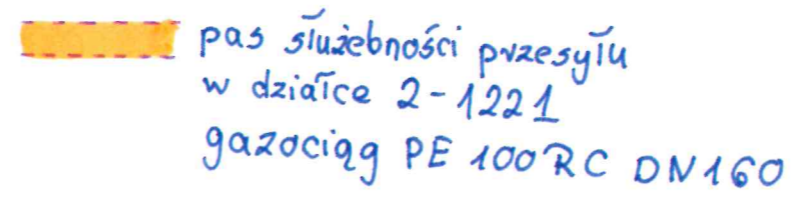 pas służebności przesyłu
w działce 2-1221
gazociąg PE 100RC DN160